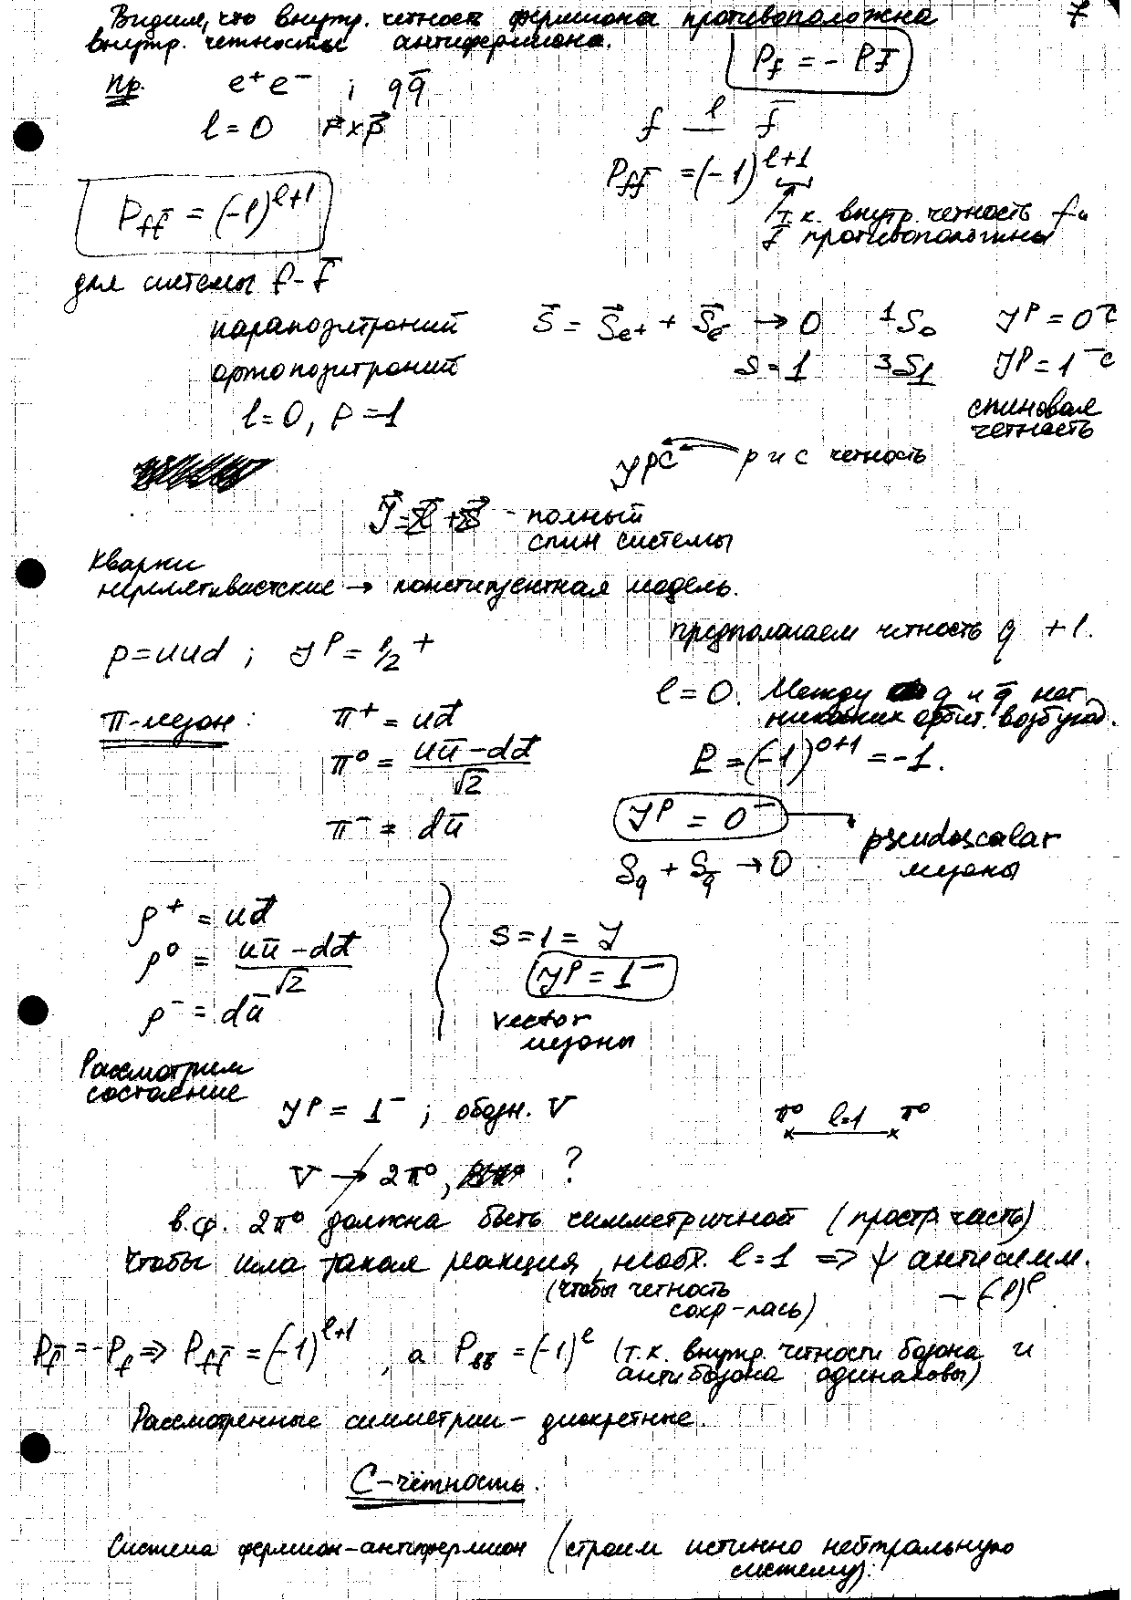 7
Видим, что внутр. четность фермиона противоположна
внутр. четности антифермиона.
P_f = - P_f̄
пр. e⁺e⁻ ; qq̄
l = 0 r⃗×p⃗
f —l— f̄
P_ff̄ = (-1)^{l+1}
т.к. внутр. четность f и
f̄ противоположны
P_ff̄ = (-1)^{l+1}
для системы f-f̄
парапозитроний S⃗ = S⃗_e+ + S⃗_e- → 0 ¹S₀ J^P = 0^{-c}
ортопозитроний s=1 ³S₁ J^P = 1^{-c}
l=0, P=-1
спиновая
четность
J^{PC} P и C четность
J⃗ = l⃗ + S⃗ - полный
спин системы
Кварки
нерелятивистские → конституентная модель.
предполагаем четность q +1.
p = uud ; J^P = 1/2⁺
l = 0. Между q и q̄ нет
никаких орбит. возбужд.
π-мезон: π⁺ = ud̄
π⁰ = (uū - dd̄)/√2
P = (-1)^{0+1} = -1.
π⁻ = dū
J^P = 0⁻ → pseudoscalar
мезоны
S_q + S_q̄ → 0
ρ⁺ = ud̄
ρ⁰ = (uū - dd̄)/√2
ρ⁻ = dū
s = 1 = J
J^P = 1⁻
vector
мезоны
Рассмотрим
состояние
J^P = 1⁻ ; обозн. V
π⁰ l=1 π⁰
V ↛ 2π⁰, ?
в.ф. 2π⁰ должна быть симметричной (простр. часть)
Чтобы шла такая реакция, необх. l=1 => ψ антисимм.
(чтобы четность
сохр-лась)
~ (-1)^l
P_f̄ = -P_f => P_ff̄ = (-1)^{l+1}, а P_bb̄ = (-1)^l (т.к. внутр. четности бозона и
антибозона одинаковы)
Рассмотренные симметрии - дискретные.
C-чётность.
Система фермион-антифермион (строим истинно нейтральную
систему).